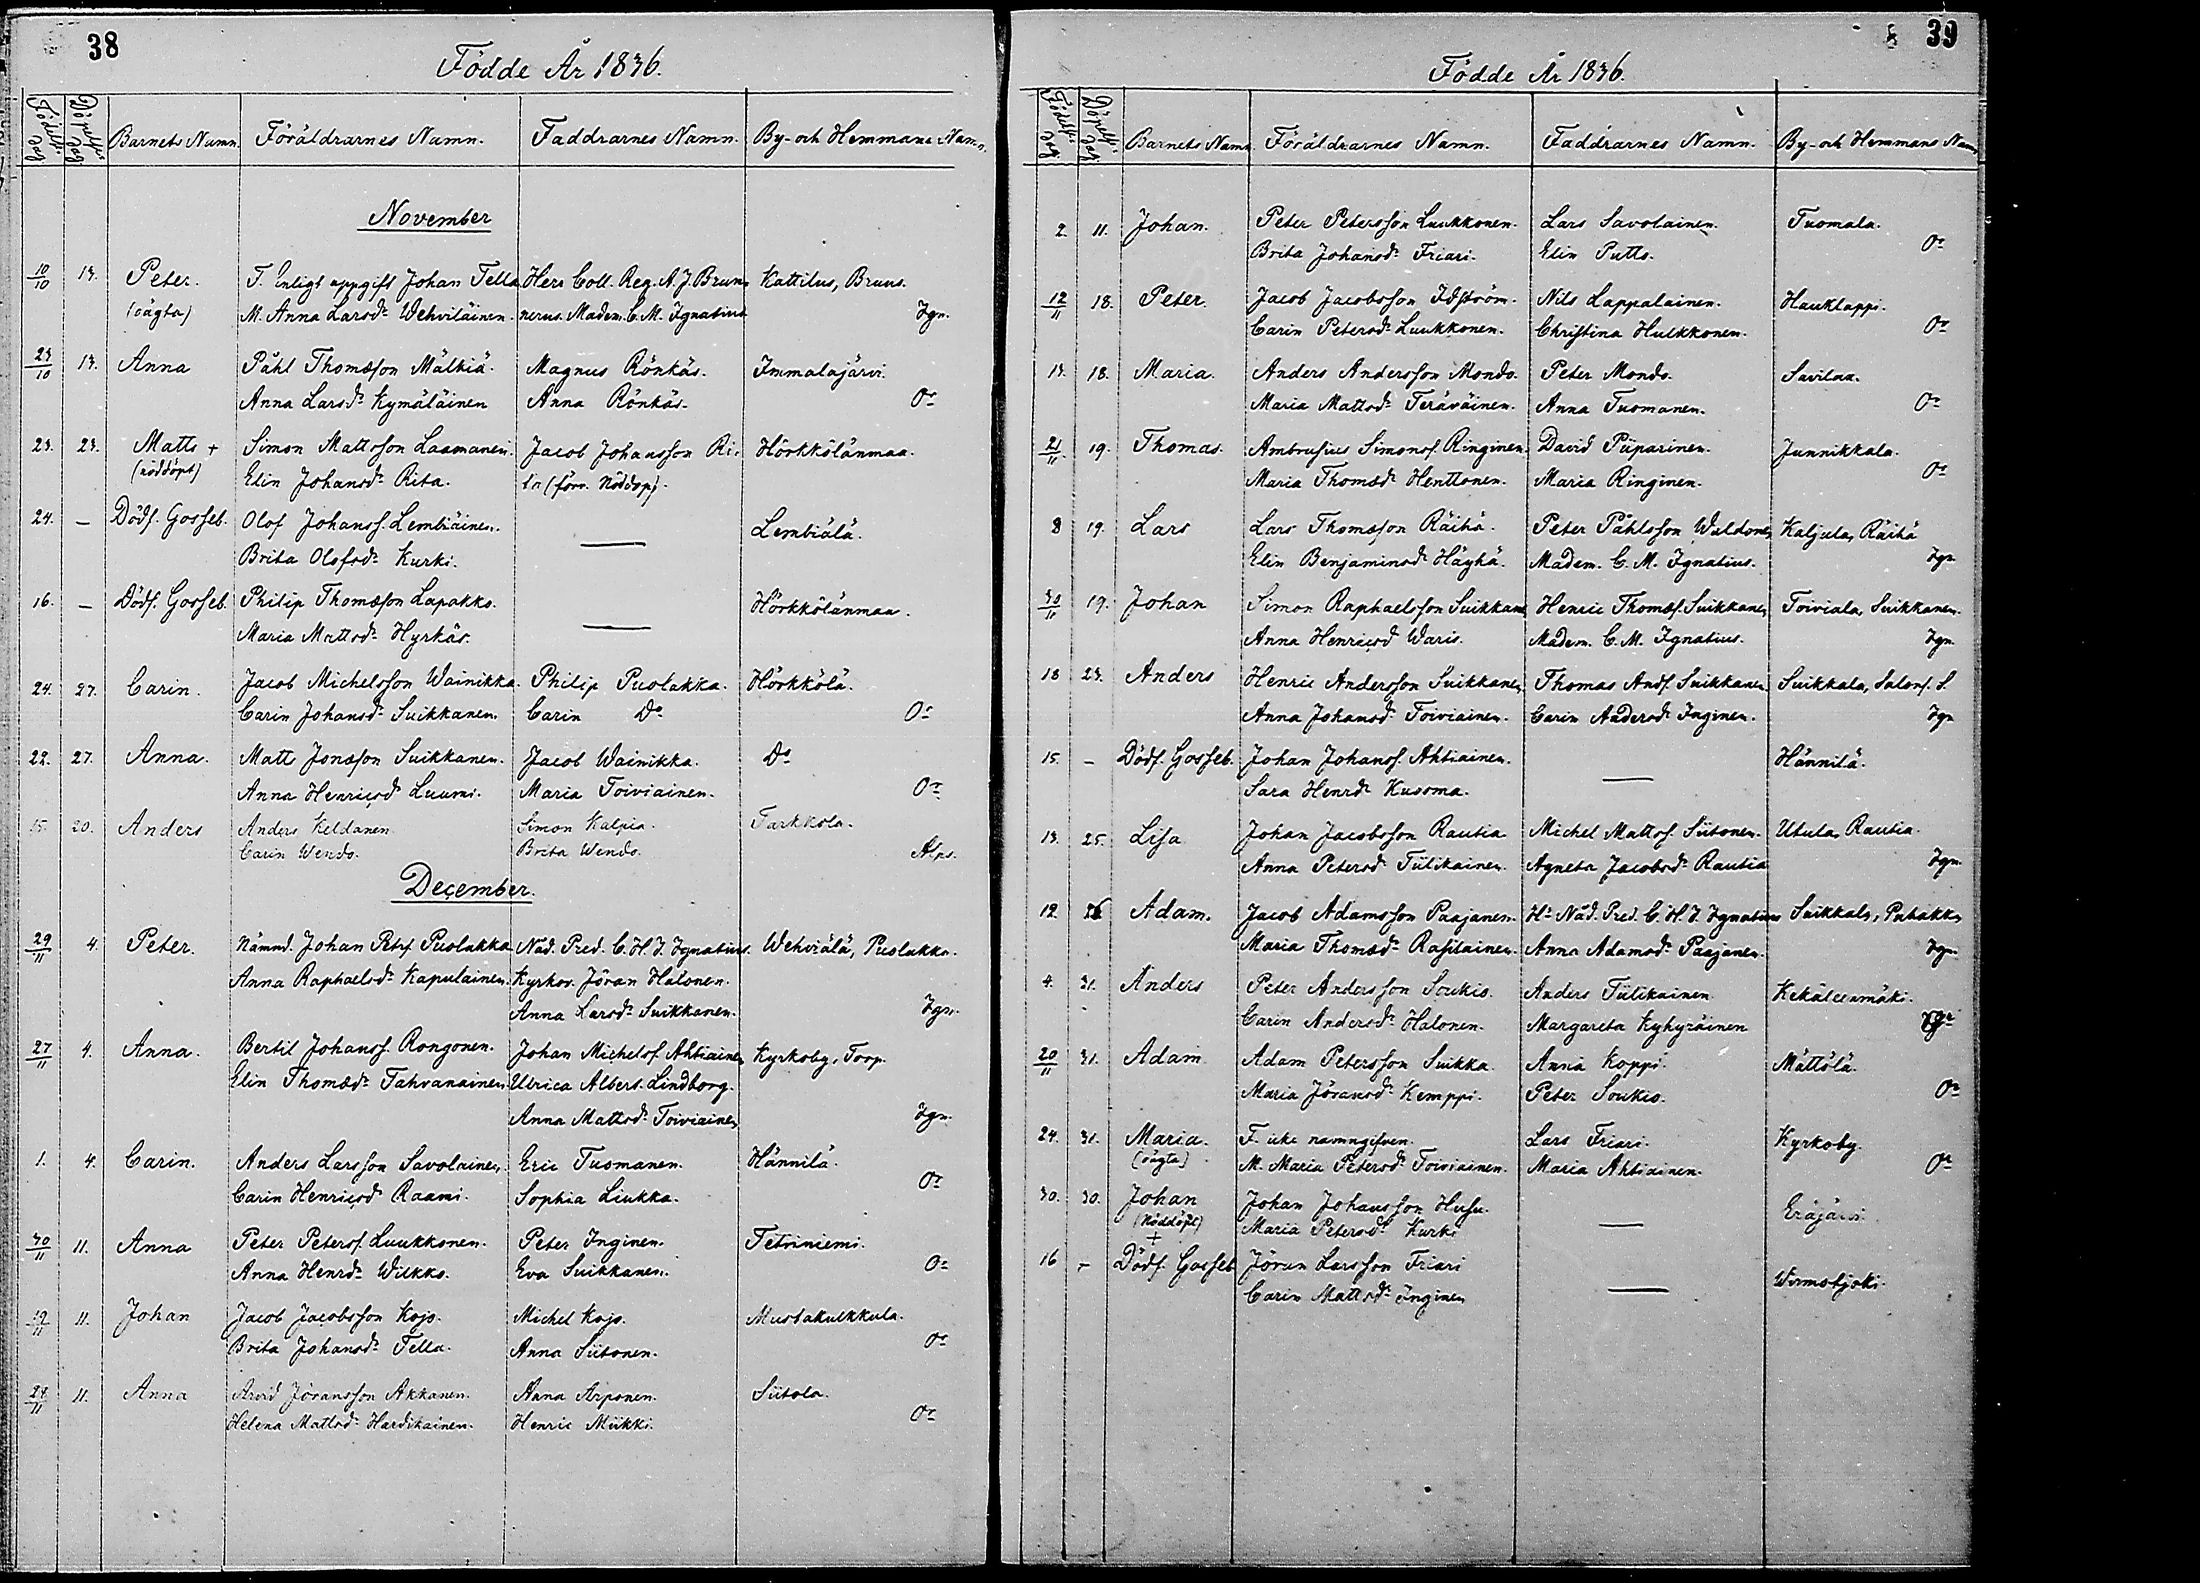 38
Födde År 1836.
Födelse dag
Döpelse dag
Barnets Namn.
Föräldrarnes Namn.
Faddrarnes Namn.
By- och Hemmans Namn.
November
10/10 13. Peter. F. Enligt uppgift Johan Tella Herr Coll. Reg. A. J. Brum Kattilus, Bruns.
(oägta) M. Anna Larsd:r Wehviläinen. nerus. Madem. C. M. Ignatius Ign.
23/10 13. Anna Påhl Thomæson Mälkiä. Magnus Rönkäs. Immalajärvi.
Anna Larsd:r Kymäläinen Anna Rönkäs. O:r
23. 23. Matts + Simon Mattsson Laamanen. Jacob Johansson Ri- Hörkkölänmaa.
(nöddöpt) Elin Johansd:r Rita. ta (förr. Nöddop).
24. — Dödf. Gosseb. Olof Johansf. Lembiäinen. — Lembiälä.
Brita Olofsd:r Kurki.
16. — Dödf. Gosseb. Philip Thomæson Lapakko. — Hörkkölänmaa.
Maria Mattsd:r Hyrkäs.
24. 27. Carin. Jacob Michelsson Wainikka. Philip Puolakka. Hörkkölä.
Carin Johansd:r Suikkanen. Carin D:o O:r
22. 27. Anna. Matt Jonæson Suikkanen. Jacob Wainikka. D:o
Anna Henricsd Luumi. Maria Toiviainen. O:r
15. 20. Anders Anders Keldanen. Simon Kalpia. Tarkkola.
Carin Wendo. Brita Wendo. Alps.
December.
29/11 4. Peter. Nämnd. Johan Petsf Puolakka Nåd. Pred. C. H. J. Ignatius. Wehviälä, Puolakka.
Anna Raphaelsd:r Kapulainen. Kyrkov. Jöran Halonen.
Anna Larsd:r Suikkanen. Ign.
27/11 4. Anna. Bertil Johansf. Rongonen. Johan Michelsf. Ahtiainen Kyrkoby, Torp.
Elin Thomæd:r Tahvanainen. Ulrica Albert. Lindborg.
Anna Mattsd:r Toiviainen Ign.
1. 4. Carin. Anders Larsson Savolainen. Eric Tuomanen. Hännilä.
Carin Henricsd:r Raami. Sophia Liukka. O:r
30/11 11. Anna Peter Petersf. Luukkonen. Peter Inginen. Tetriniemi.
Anna Henrd:r Wilkko. Eva Suikkanen. O:r
19/11 11. Johan Jacob Jacobsson Kojo. Michel Kojo. Mustakulkkula.
Brita Johansd:r Tella. Anna Siitonen. O:r
24/11 11. Anna Arvid Jöransson Akkanen. Anna Arponen. Siitola.
Helena Mattsd:r Hardikainen. Henric Miikki. O:r
39
Födde År 1836.
Födelse dag
Döpelse dag
Barnets Namn.
Föräldrarnes Namn.
Faddrarnes Namn.
By- och Hemmans Namn
2. 11. Johan. Peter Petersson Luukkonen. Lars Savolainen. Tuomala.
Brita Johansd:r Friari. Elin Putto. O:r
12/11 18. Peter. Jacob Jacobsson Idström. Nils Lappalainen. Hauklappi.
Carin Petersd:r Luukkonen. Christina Hulkkonen. O:r
13. 18. Maria. Anders Andersson Mondo. Peter Mondo. Savilaa.
Maria Mattsd:r Teräväinen. Anna Tuomanen. O:r
21/11 19. Thomas. Ambrusius Simonsf. Ringinen. David Piiparinen. Junnikkala.
Maria Thomæd:r Henttonen. Maria Ringinen. O:r
8 19. Lars Lars Thomæson Räihä. Peter Påhlsson Waldonen Kaljula, Räihä
Elin Benjaminsd:r Häyhä. Madem. C. M. Ignatius. Ign.
30/11 19. Johan Simon Raphaelsson Suikkanen Henric Thomæsf. Suikkanen Toiviala, Suikkanen.
Anna Henricsd Waris. Madem. C. M. Ignatius. Ign.
18 23. Anders Henric Andersson Suikkanen Thomas Andf. Suikkanen Suikkala, Salonf. S.
Anna Johansd:r Toiviainen. Carin Andersd:r Inginen. Ign
15. — Dödf. Gosseb. Johan Johansf. Ahtiainen. — Hännilä.
Sara Henrd:r Kusoma.
13. 25. Lisa Johan Jacobsson Rautia Michel Mattsf. Siitonen. Utula, Rautia.
Anna Petersd:r Tiilikainen. Agneta Jacobsd:r Rautia Ign.
12. 26 Adam. Jacob Adamsson Paajanen. H:r Nåd. Pred. C. H. J. Ignatius Suikkala, Puhakka
Maria Thomæd:r Rasilainen. Anna Adamsd:r Paajanen. Ign.
4. 31. Anders Peter Andersson Soukio. Anders Tiilikainen Kekäleenmäki.
Carin Andersd:r Halonen. Margareta Kyhyräinen O:r
20/11 31. Adam Adam Petersson Suikka. Anna Koppi. Mättölä.
Maria Jöransd:r Kemppi. Peter Soukio. O:r
24. 31. Maria. F. icke namngifven. Lars Friari. Kyrkoby.
(oägta) M. Maria Petersd:r Toiviainen. Maria Ahtiainen. O:r
30. 30. Johan Johan Johansson Husu. — Eräjärvi.
(Nöddöpt) Maria Petersd:r Kurki
+
16 — Dödf. Gosseb Jöran Larsson Friari — Wirmotjoki.
Carin Mattsd:r Inginen